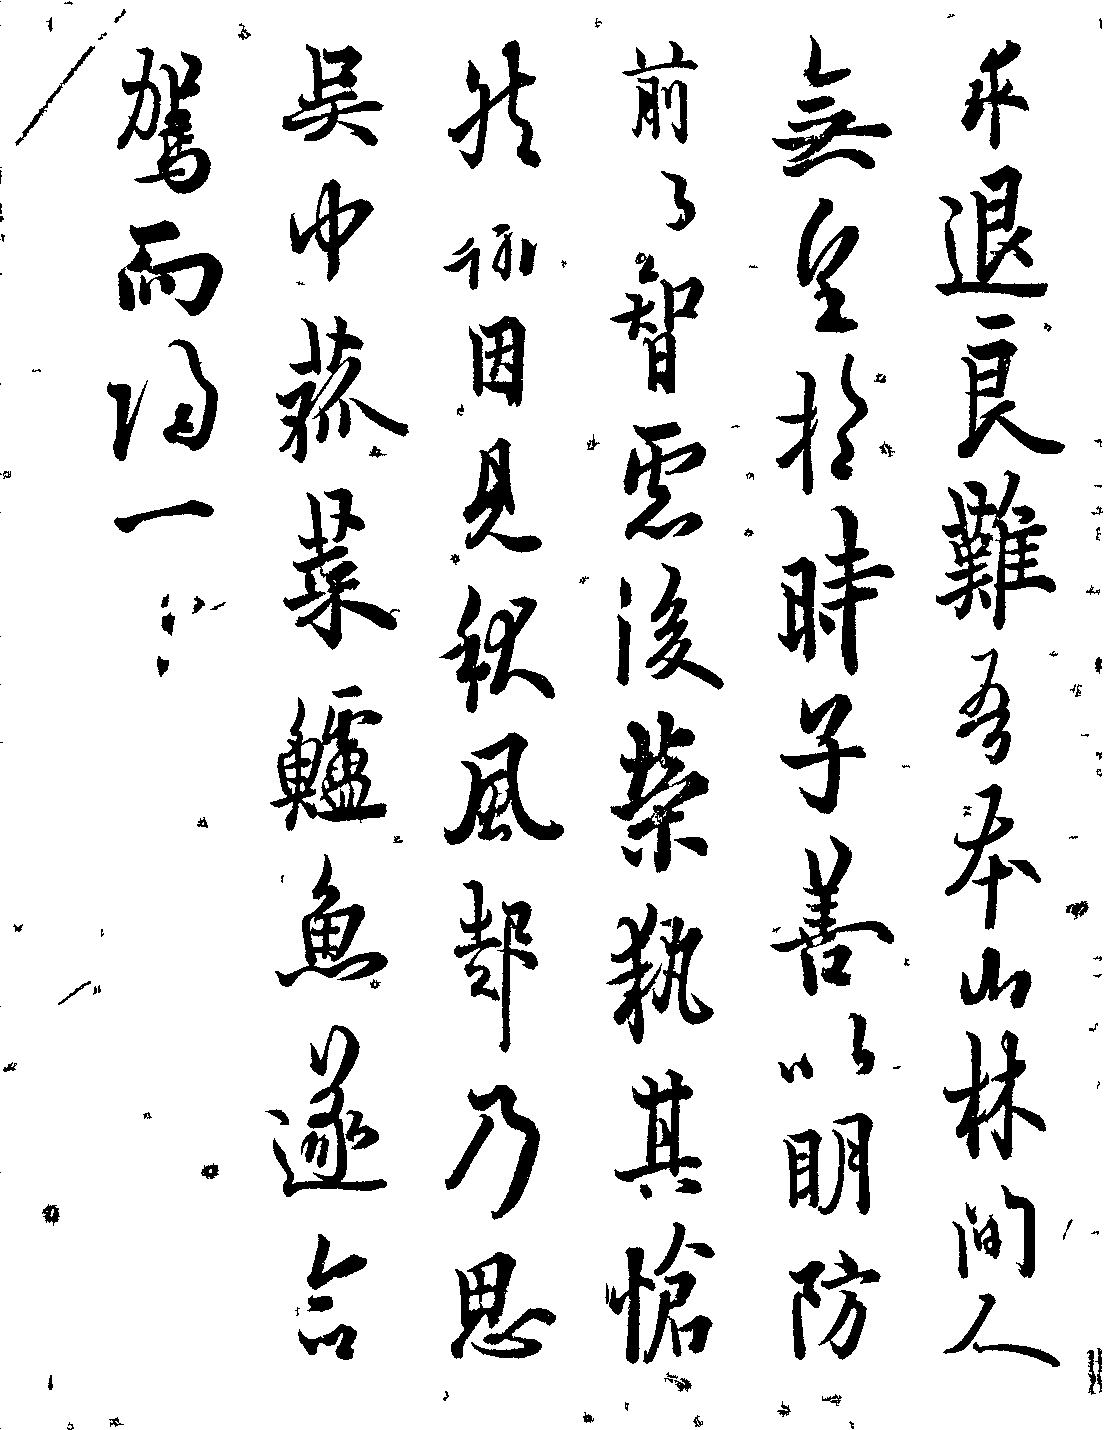 求退良難吾本山林間人
無望於時子善以明防
前以智慮後榮執其愴
然翰因見秋風起乃思
吳中菰菜鱸魚遂命
駕而歸